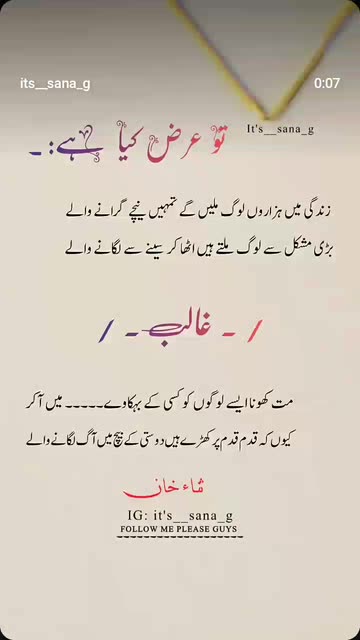 its__sana_g
0:07
It's__sana_g
تو عرض کیا ہے: ۔
زندگی میں ہزاروں لوگ ملیں گے تمہیں نیچے گرانے والے
بڑی مشکل سے لوگ ملتے ہیں اٹھا کر سینے سے لگانے والے
/ ۔ غالب ۔ /
مت کھونا ایسے لوگوں کو کسی کے بہکاوے۔۔۔۔۔ میں آ کر
کیوں کہ قدم قدم پر کھڑے ہیں دوستی کے بیچ میں آگ لگانے والے
ثناء خان
IG: it's__sana_g
FOLLOW ME PLEASE GUYS